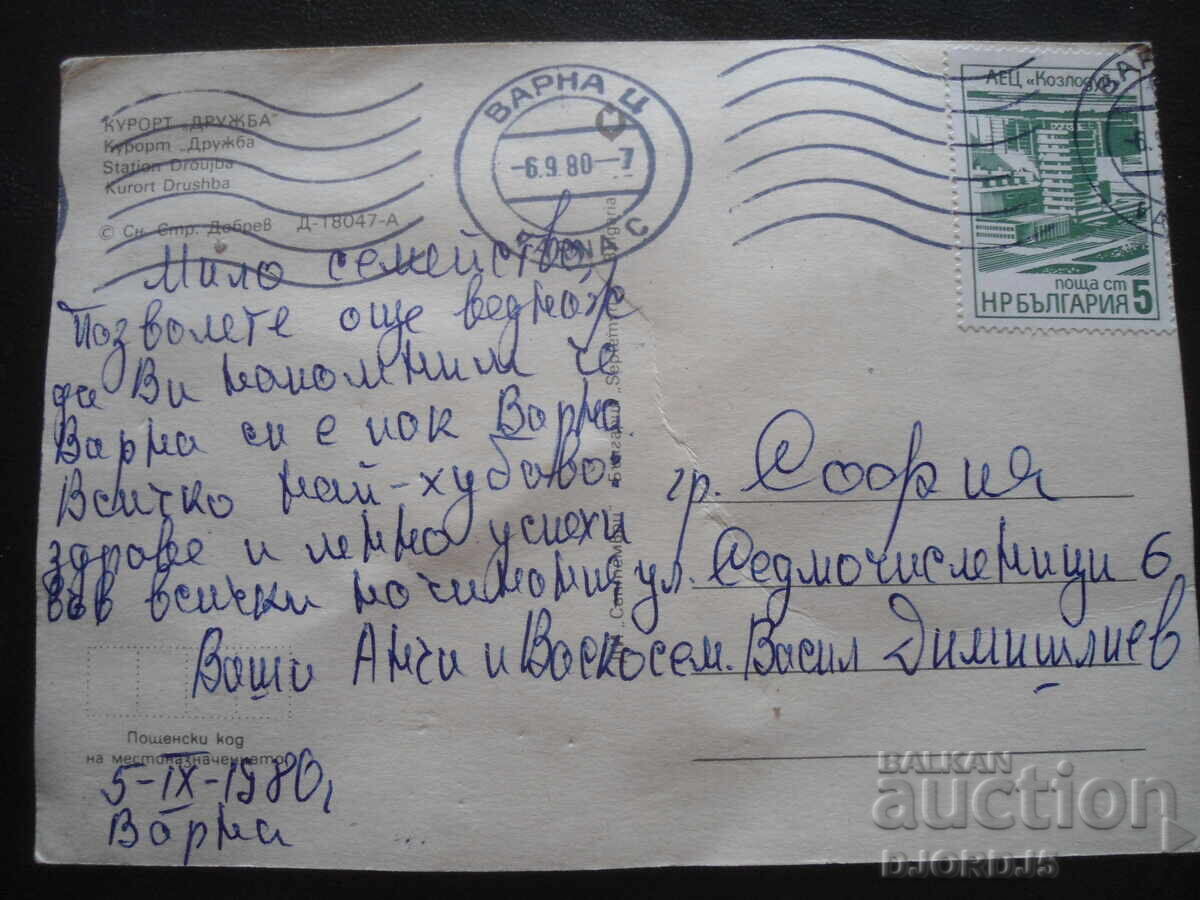 КУРОРТ „ДРУЖБА"
Курорт „Дружба
Station Droujba
Kurort Drushba
© Сн. Стр. Добрев Д-18047-А
ВАРНА Ц
-6.9.80-7
VARNA C
АЕЦ «Козлодуй»
поща ст
НР БЪЛГАРИЯ 5
Мило семейство,
Позволете още веднож
да Ви напомним че
Варна си е пак Варна
Всичко най-хубаво
здраве и лично успехи
във всички начинания
Ваши Анчи и Васко
5-IX-1980,
Варна
Пощенски код
на местоназначението
гр. София
ул. Седмочисленици 6
сем. Васил Димишлиев
BALKAN
auction
DJORDJ5